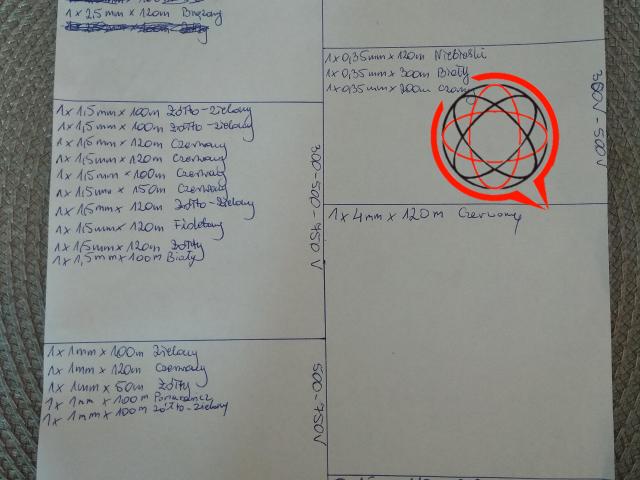 1 x 2,5mm x 120m Brązowy
1 x 1,5mm x 100m Żółto-zielony
1 x 1,5mm x 100m Żółto-zielony
1 x 1,5mm x 120m Czerwony
1 x 1,5mm x 120m Czerwony
1 x 1,5mm x 100m Czerwony
1 x 1,5mm x 150m Czerwony
1 x 1,5mm x 120m Żółto-zielony
1 x 1,5mm x 120m Fioletowy
1 x 1,5mm x 120m Żółty
1 x 1,5mm x 100m Biały
300-500-750 V
1 x 1mm x 100m Zielony
1 x 1mm x 120m Czerwony
1 x 1mm x 50m Żółty
1 x 1mm x 100m Pomarańcz
1 x 1mm x 100m Żółto-zielony
500-750V
1 x 0,35mm x 120m Niebieski
1 x 0,35mm x 300m Biały
1 x 0,35mm x 200m Czarny
300V-500V
1 x 4mm x 120m Czerwony